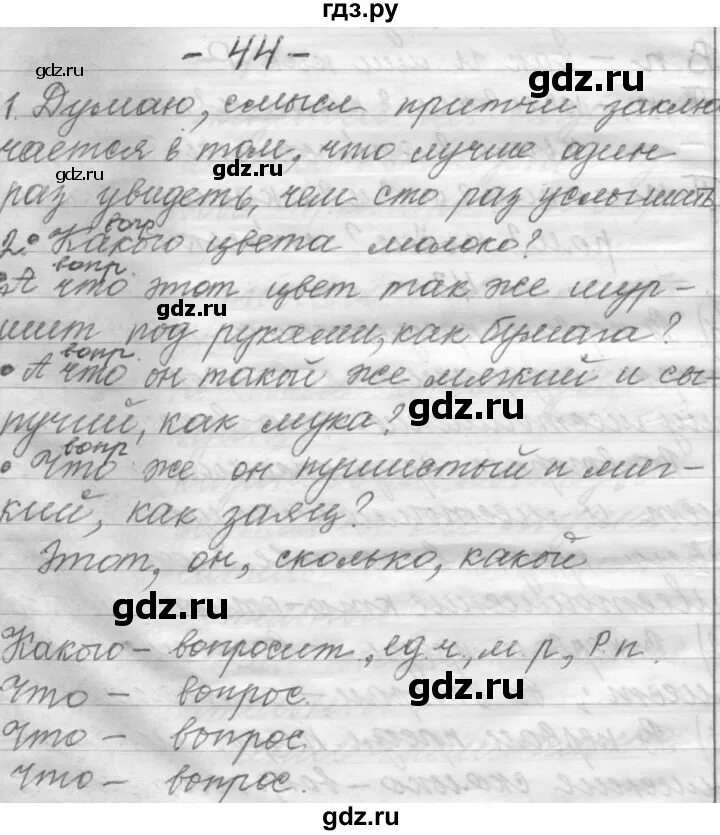 гдз.ру
- 44 -
1. Думаю, смысл притчи заклю
чается в том, что лучше один
раз увидеть, чем сто раз услышать
вопр.
2. • Какого цвета молоко?
вопр.
• А что этот цвет так же шур-
шит под руками, как бумага?
вопр.
• А что он такой же мягкий и сы-
пучий, как мука?
вопр
• Что же он пушистый и мяг-
кий, как заяц?
Этот, он, сколько, какой
Какого - вопросит., ед.ч., м.р., Р.п.
Что - вопрос.
Что - вопрос.
Что - вопрос.
gdz.ru
gdz.ru
gdz.ru
gdz.ru
gdz.ru
gdz.ru
gdz.ru
gdz.ru
gdz.ru